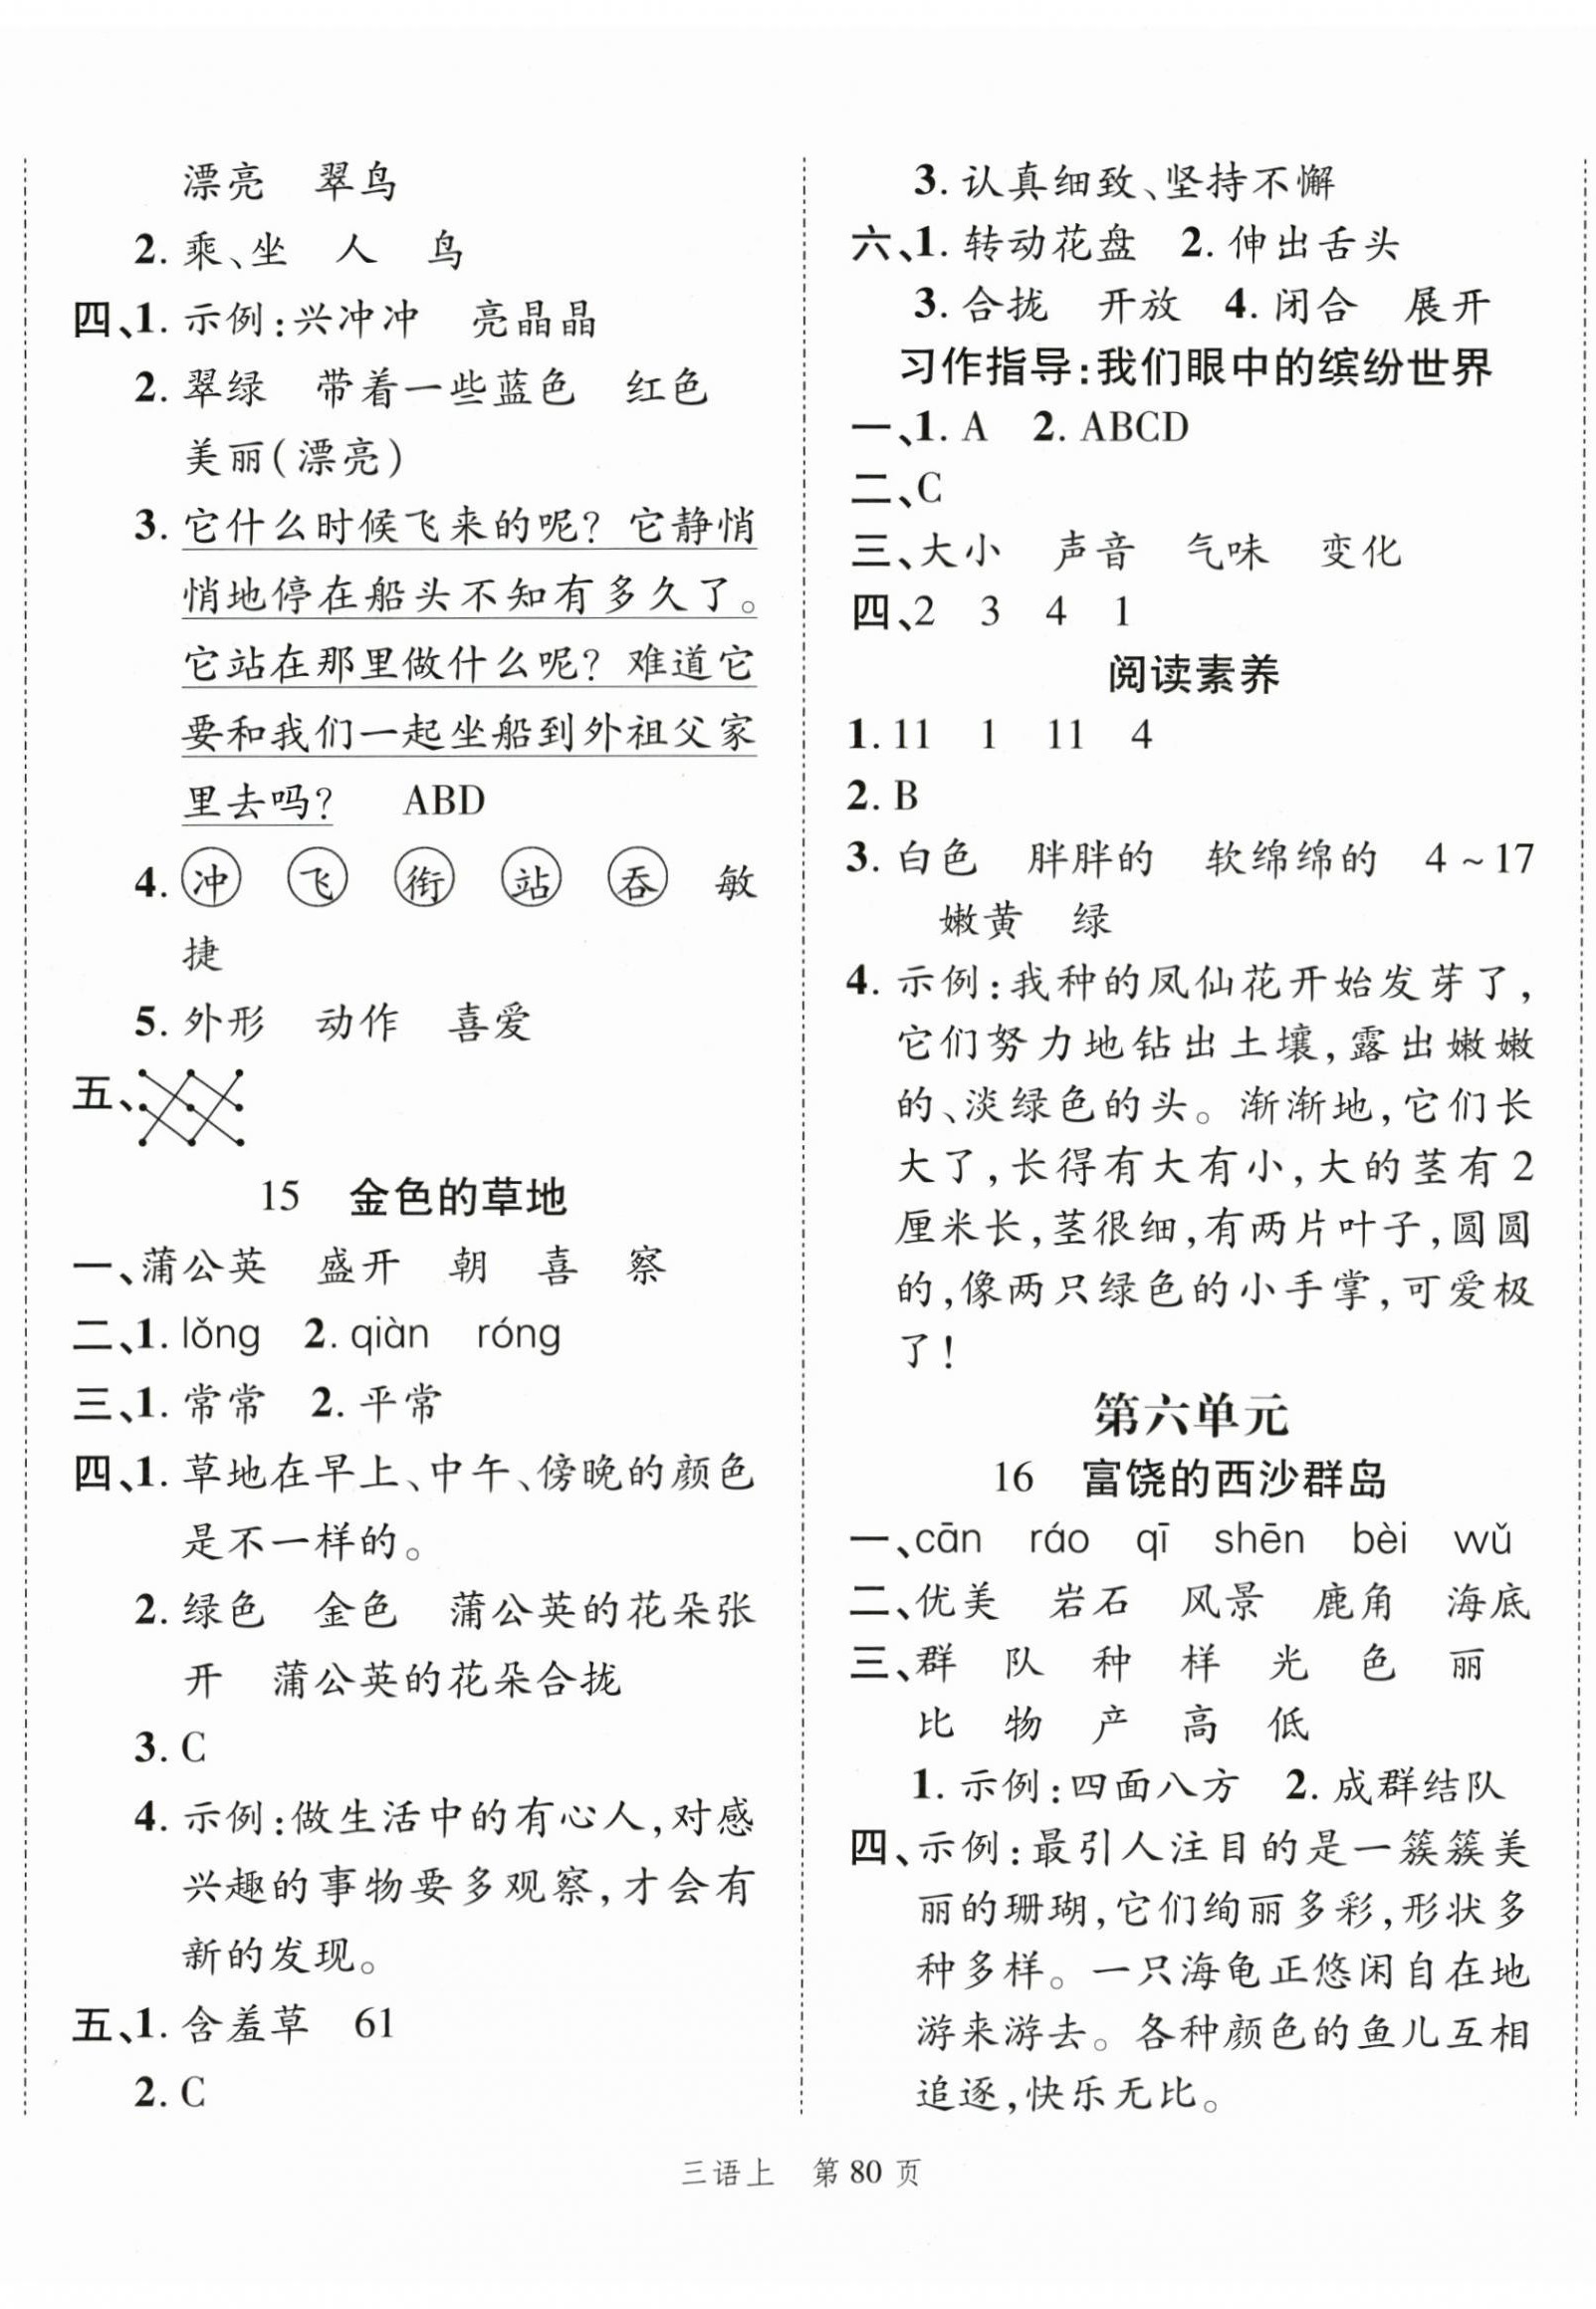 漂亮 翠鸟
2. 乘、坐 人 鸟
四、1. 示例:兴冲冲 亮晶晶
2. 翠绿 带着一些蓝色 红色
美丽(漂亮)
3. 它什么时候飞来的呢? 它静悄
悄地停在船头不知有多久了。
它站在那里做什么呢? 难道它
要和我们一起坐船到外祖父家
里去吗? ABD
4. 冲 飞 衔 站 吞 敏
捷
5. 外形 动作 喜爱
五、
15 金色的草地
一、蒲公英 盛开 朝 喜 察
二、1. lǒng 2. qiàn róng
三、1. 常常 2. 平常
四、1. 草地在早上、中午、傍晚的颜色
是不一样的。
2. 绿色 金色 蒲公英的花朵张
开 蒲公英的花朵合拢
3. C
4. 示例:做生活中的有心人,对感
兴趣的事物要多观察,才会有
新的发现。
五、1. 含羞草 61
2. C
3. 认真细致、坚持不懈
六、1. 转动花盘 2. 伸出舌头
3. 合拢 开放 4. 闭合 展开
习作指导:我们眼中的缤纷世界
一、1. A 2. ABCD
二、C
三、大小 声音 气味 变化
四、2 3 4 1
阅读素养
1. 11 1 11 4
2. B
3. 白色 胖胖的 软绵绵的 4~17
嫩黄 绿
4. 示例:我种的凤仙花开始发芽了,
它们努力地钻出土壤,露出嫩嫩
的、淡绿色的头。渐渐地,它们长
大了,长得有大有小,大的茎有2
厘米长,茎很细,有两片叶子,圆圆
的,像两只绿色的小手掌,可爱极
了!
第六单元
16 富饶的西沙群岛
一、cān ráo qī shēn bèi wǔ
二、优美 岩石 风景 鹿角 海底
三、群 队 种 样 光 色 丽
比 物 产 高 低
1. 示例:四面八方 2. 成群结队
四、示例:最引人注目的是一簇簇美
丽的珊瑚,它们绚丽多彩,形状多
种多样。一只海龟正悠闲自在地
游来游去。各种颜色的鱼儿互相
追逐,快乐无比。
三语上 第80页